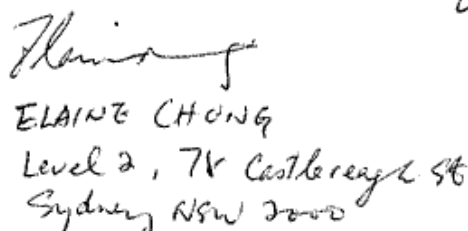 ELAINE CHONG
Level 2, 78 Castlereagh St
Sydney NSW 2000